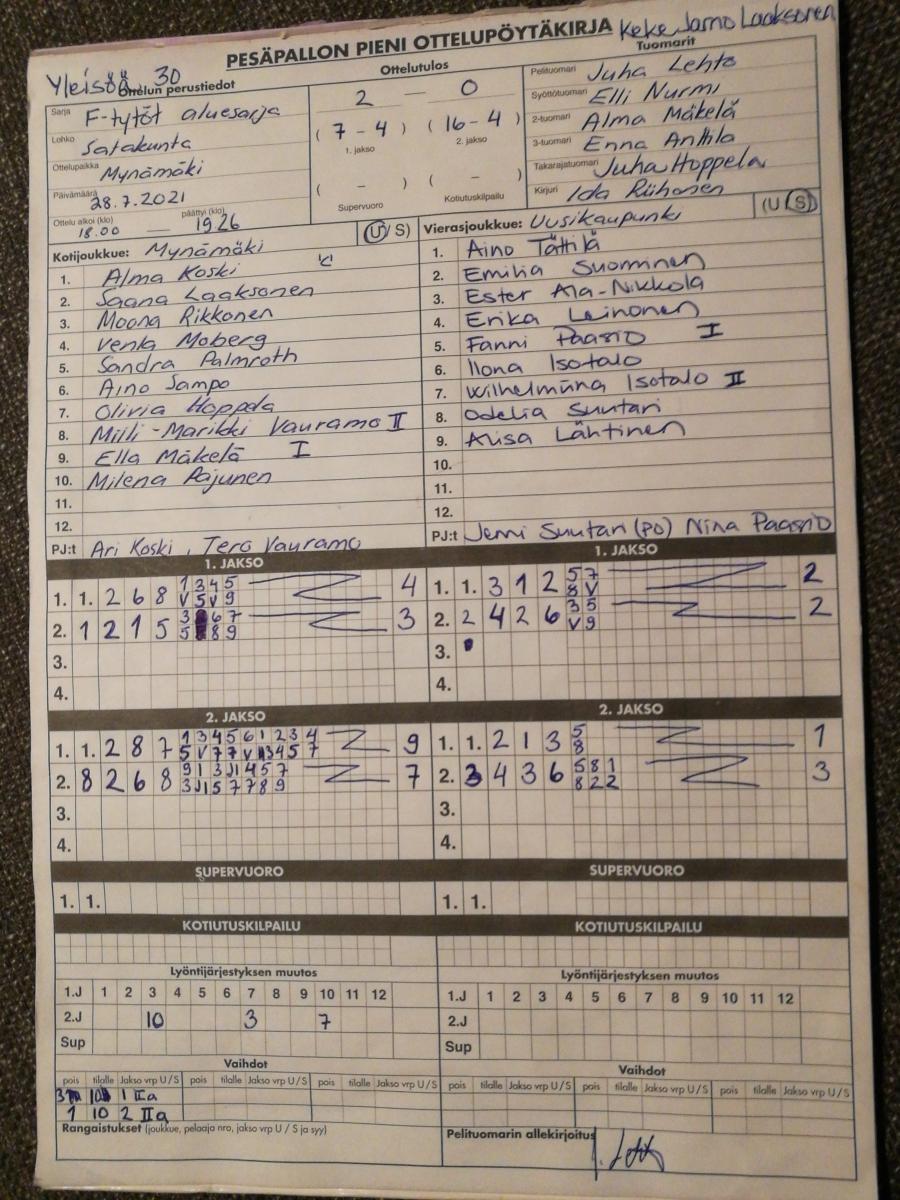 PESÄPALLON PIENI OTTELUPÖYTÄKIRJA Keke Jarno Laaksonen
Yleisöä 30
Ottelun perustiedot
Ottelutulos
Tuomarit
Sarja F-tytöt aluesarja
Lohko Satakunta
Ottelupaikka Mynämäki
Päivämäärä 28.7.2021
Ottelu alkoi (klo) 18.00 — päättyi (klo) 19.26
2 — 0
( 7 - 4 ) ( 16 - 4 )
1. jakso 2. jakso
( - ) ( - )
Supervuoro Kotiutuskilpailu
Pelituomari Juha Lehto
Syöttötuomari Elli Nurmi
2-tuomari Alma Mäkelä
3-tuomari Enna Anttila
Takarajatuomari Juha Hoppela
Kirjuri Ida Riihonen
Kotijoukkue: Mynämäki (U/S)
1. Alma Koski "C"
2. Saana Laaksonen
3. Moona Rikkonen
4. Venla Moberg
5. Sandra Palmroth
6. Aino Sampo
7. Olivia Hoppela
8. Milli-Marikki Vauramo II
9. Ella Mäkelä I
10. Milena Pajunen
11.
12.
PJ:t Ari Koski, Tero Vauramo
Vierasjoukkue: Uusikaupunki (U/S)
1. Aino Tättilä
2. Emilia Suominen
3. Ester Ala-Nikkola
4. Erika Leinonen
5. Fanni Paasio I
6. Ilona Isotalo
7. Wilhelmiina Isotalo II
8. Odelia Suutari
9. Alisa Lähtinen
10.
11.
12.
PJ:t Jenni Suutari (PO) Nina Paasio
1. JAKSO
1. 1. 2 6 8 1 3 4 5 4
V 5 V 9
2. 1 2 1 5 3 6 7 3
5 8 9
3.
4.
1. JAKSO
1. 1. 3 1 2 5 7 2
8 V
2. 2 4 2 6 3 5 2
V 9
3.
4.
2. JAKSO
1. 1. 2 8 7 1 3 4 5 6 1 2 3 4 9
5 V 7 7 V 3 4 5 7
2. 8 2 6 8 9 1 3 1 4 5 7 7
5 7 7 8 9
3.
4.
2. JAKSO
1. 1. 2 1 3 5 1
8
2. 3 4 3 6 5 8 1 3
8 2 2
3.
4.
SUPERVUORO
1. 1.
SUPERVUORO
1. 1.
KOTIUTUSKILPAILU
KOTIUTUSKILPAILU
Lyöntijärjestyksen muutos
1.J 1 2 3 4 5 6 7 8 9 10 11 12
2.J 10 3 7
Sup
Lyöntijärjestyksen muutos
1.J 1 2 3 4 5 6 7 8 9 10 11 12
2.J
Sup
Vaihdot
pois tilalle Jakso vrp U/S pois tilalle Jakso vrp U/S pois tilalle Jakso vrp U/S
3 10 1 IIa
1 10 2 IIa
Vaihdot
pois tilalle Jakso vrp U/S pois tilalle Jakso vrp U/S pois tilalle Jakso vrp U/S
Rangaistukset (joukkue, pelaaja nro, jakso vrp U / S ja syy)
Pelituomarin allekirjoitus